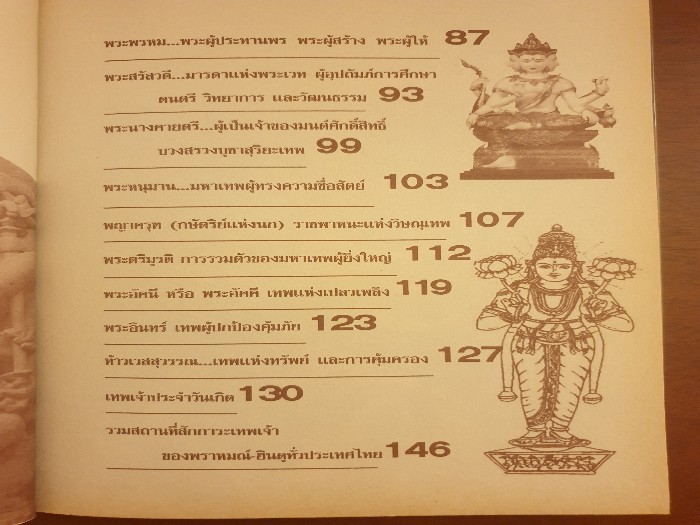 พระพรหม...พระผู้ประทานพร พระผู้สร้าง พระผู้ให้ 87
พระสรัสวดี...มารดาแห่งพระเวท ผู้อุปถัมภ์การศึกษา
ดนตรี วิทยาการ และวัฒนธรรม 93
พระนางคายตรี...ผู้เป็นเจ้าของมนต์ศักดิ์สิทธิ์
บวงสรวงบูชาสุริยะเทพ 99
พระหนุมาน...มหาเทพผู้ทรงความซื่อสัตย์ 103
พญาครุฑ (กษัตริย์แห่งนก) ราชพาหนะแห่งวิษณุเทพ 107
พระตรีมูรติ การรวมตัวของมหาเทพผู้ยิ่งใหญ่ 112
พระอัคนี หรือ พระอัคคี เทพแห่งเปลวเพลิง 119
พระอินทร์ เทพผู้ปกป้องคุ้มภัย 123
ท้าวเวสสุวรรณ...เทพแห่งทรัพย์ และการคุ้มครอง 127
เทพเจ้าประจำวันเกิด 130
รวมสถานที่สักการะเทพเจ้า
ของพราหมณ์-ฮินดูทั่วประเทศไทย 146